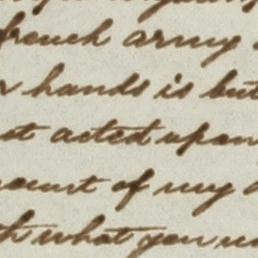 french army
hands is but
acted upon
of my
what you